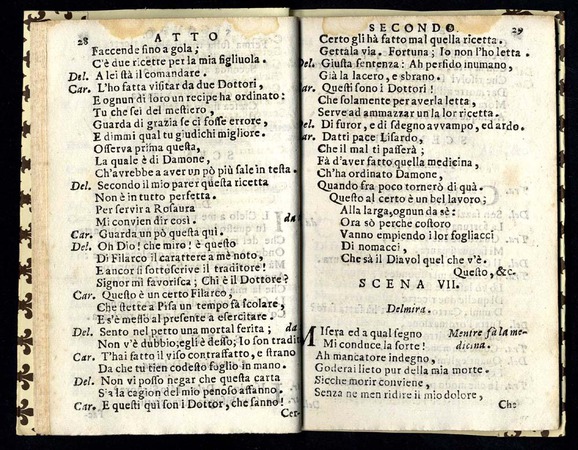 28 ATTO
Faccende fino a gola;
C'è due ricette per la mia figliuola.
Del. A lei stà il comandare.
Car. L'ho fatta visitar da due Dottori,
E ognun di loro un recipe ha ordinato:
Tu che sei del mestiero,
Guarda di grazia se ci fosse errore,
E dimmi qual tu giudichi migliore.
Osserva prima questa,
La quale è di Damone,
Ch'avrebbe a aver un pò più sale in testa.
Del. Secondo il mio parer questa ricetta
Non è in tutto perfetta.
Per servir a Rosaura
Mi convien dir così. da
Car. Guarda un pò questa quì.
Del. Oh Dio! che miro! è questo
Di Filarco il carattere a mè noto,
E ancor si sottoscrive il traditore!
Signor mi favorisca; Chi è il Dottore?
Car. Questo è un certo Filarco,
Che stette a Pisa un tempo fà scolare,
E s'è messo al presente a esercitare.
Del. Sento nel petto una mortal ferita; da
Non v'è dubbio; egli è desso; Io son tradit
Car. T'hai fatto il viso contraffatto, e strano
Da che tu tien codesto foglio in mano.
Del. Non vi posso negar che questa carta
Sia la cagion del mio penoso affanno.
Car. E questi quì son i Dottor, che sanno!
Cer-
SECONDO. 29
Certo gli hà fatto mal quella ricetta.
Gettala via. Fortuna; Io non l'ho letta.
Del. Giusta sentenza: Ah perfido inumano,
Già la lacero, e sbrano.
Car. Questi sono i Dottori!
Che solamente per averla letta,
Serve ad ammazzar un la lor ricetta.
Del. Di furor, e di sdegno avvampo, ed ardo.
Car. Datti pace Lisardo,
Che il mal ti passerà;
Fà d'aver fatto quella medicina,
Ch'ha ordinato Damone,
Quando fra poco tornerò di quà.
Questo al certo è un bel lavoro;
Alla larga, ognun da sè:
Ora sò perche costoro
Vanno empiendo i lor fogliacci
Di nomacci,
Che sà il Diavol quel che v'è.
Questo, &c.
SCENA VII.
Delmira.
Misera ed a qual segno Mentre fà la me-
Mi conduce la sorte! dicina.
Ah mancatore indegno,
Goderai lieto pur della mia morte.
Sicche morir conviene,
Senza ne men ridire il mio dolore,
Che